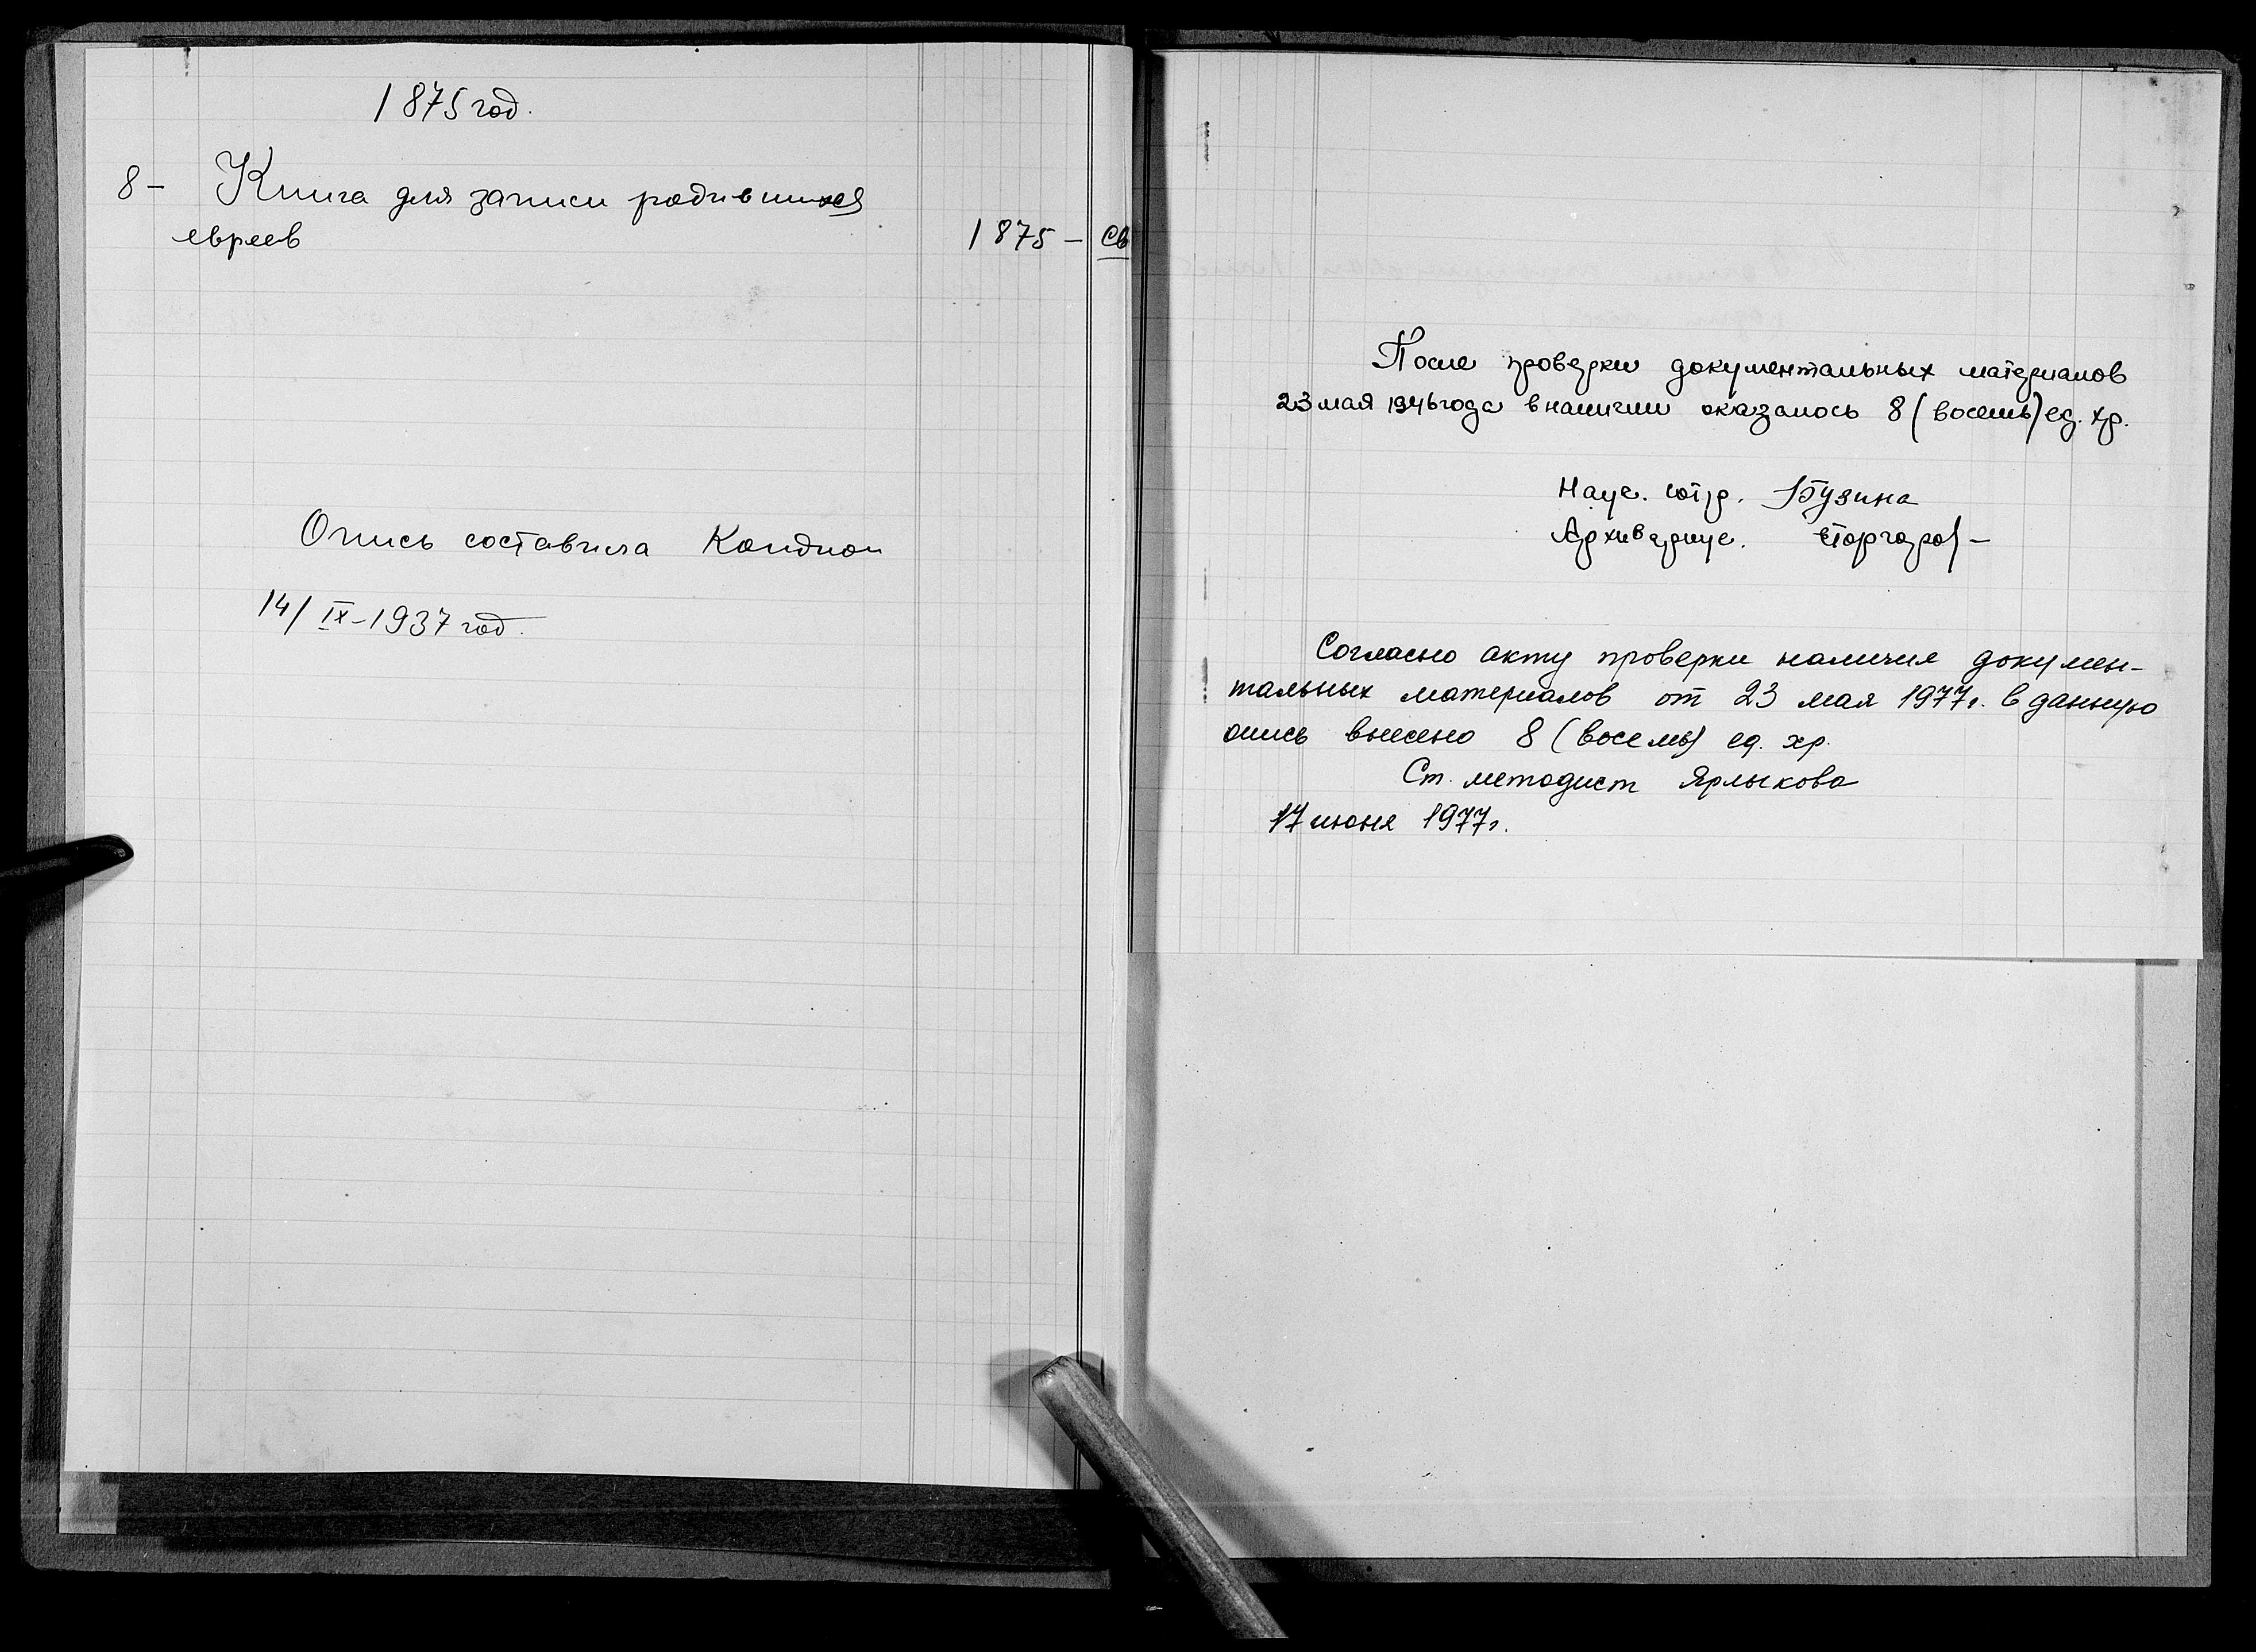 1875 год.
8 - Книга для записи родившихся
евреев 1875 - св
Опись составила
14/IX-1937 год.
После проверки документальных материалов
23 мая 1946 года в наличии оказалось 8 (восемь) ед. хр.
Науч. сотр. Бузина
Архив.
Согласно акту проверки наличия докумен-
тальных материалов от 23 мая 1977г. в данную
опись внесено 8 (восемь) ед. хр.
Ст. методист Ярлыкова
17 июня 1977г.